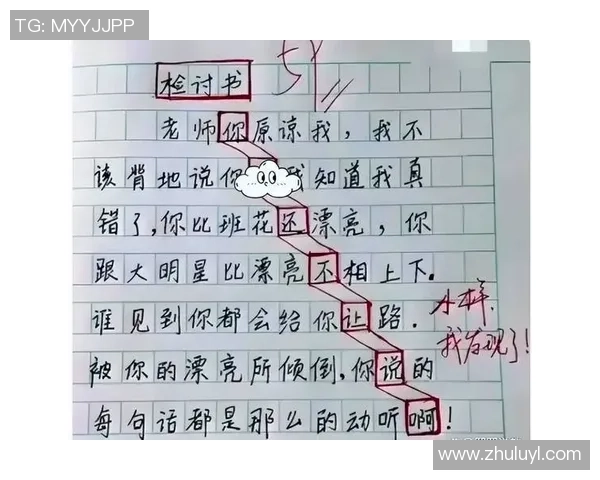 TG: MYYJJPP
检讨书
老师你原谅我，我不
该背地说你 我知道我真
错了,你比班花还漂亮，你
跟大明星比漂亮不相上下.
谁见到你都会给你让路.
小样,
我发现了!
被你的漂亮所倾倒,你说的
每句话都是那么的动听啊!
www.zhuluyl.com